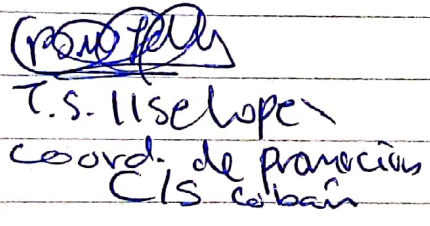 T.S. Ilse Lopez
coord. de promoción
C/S cobán